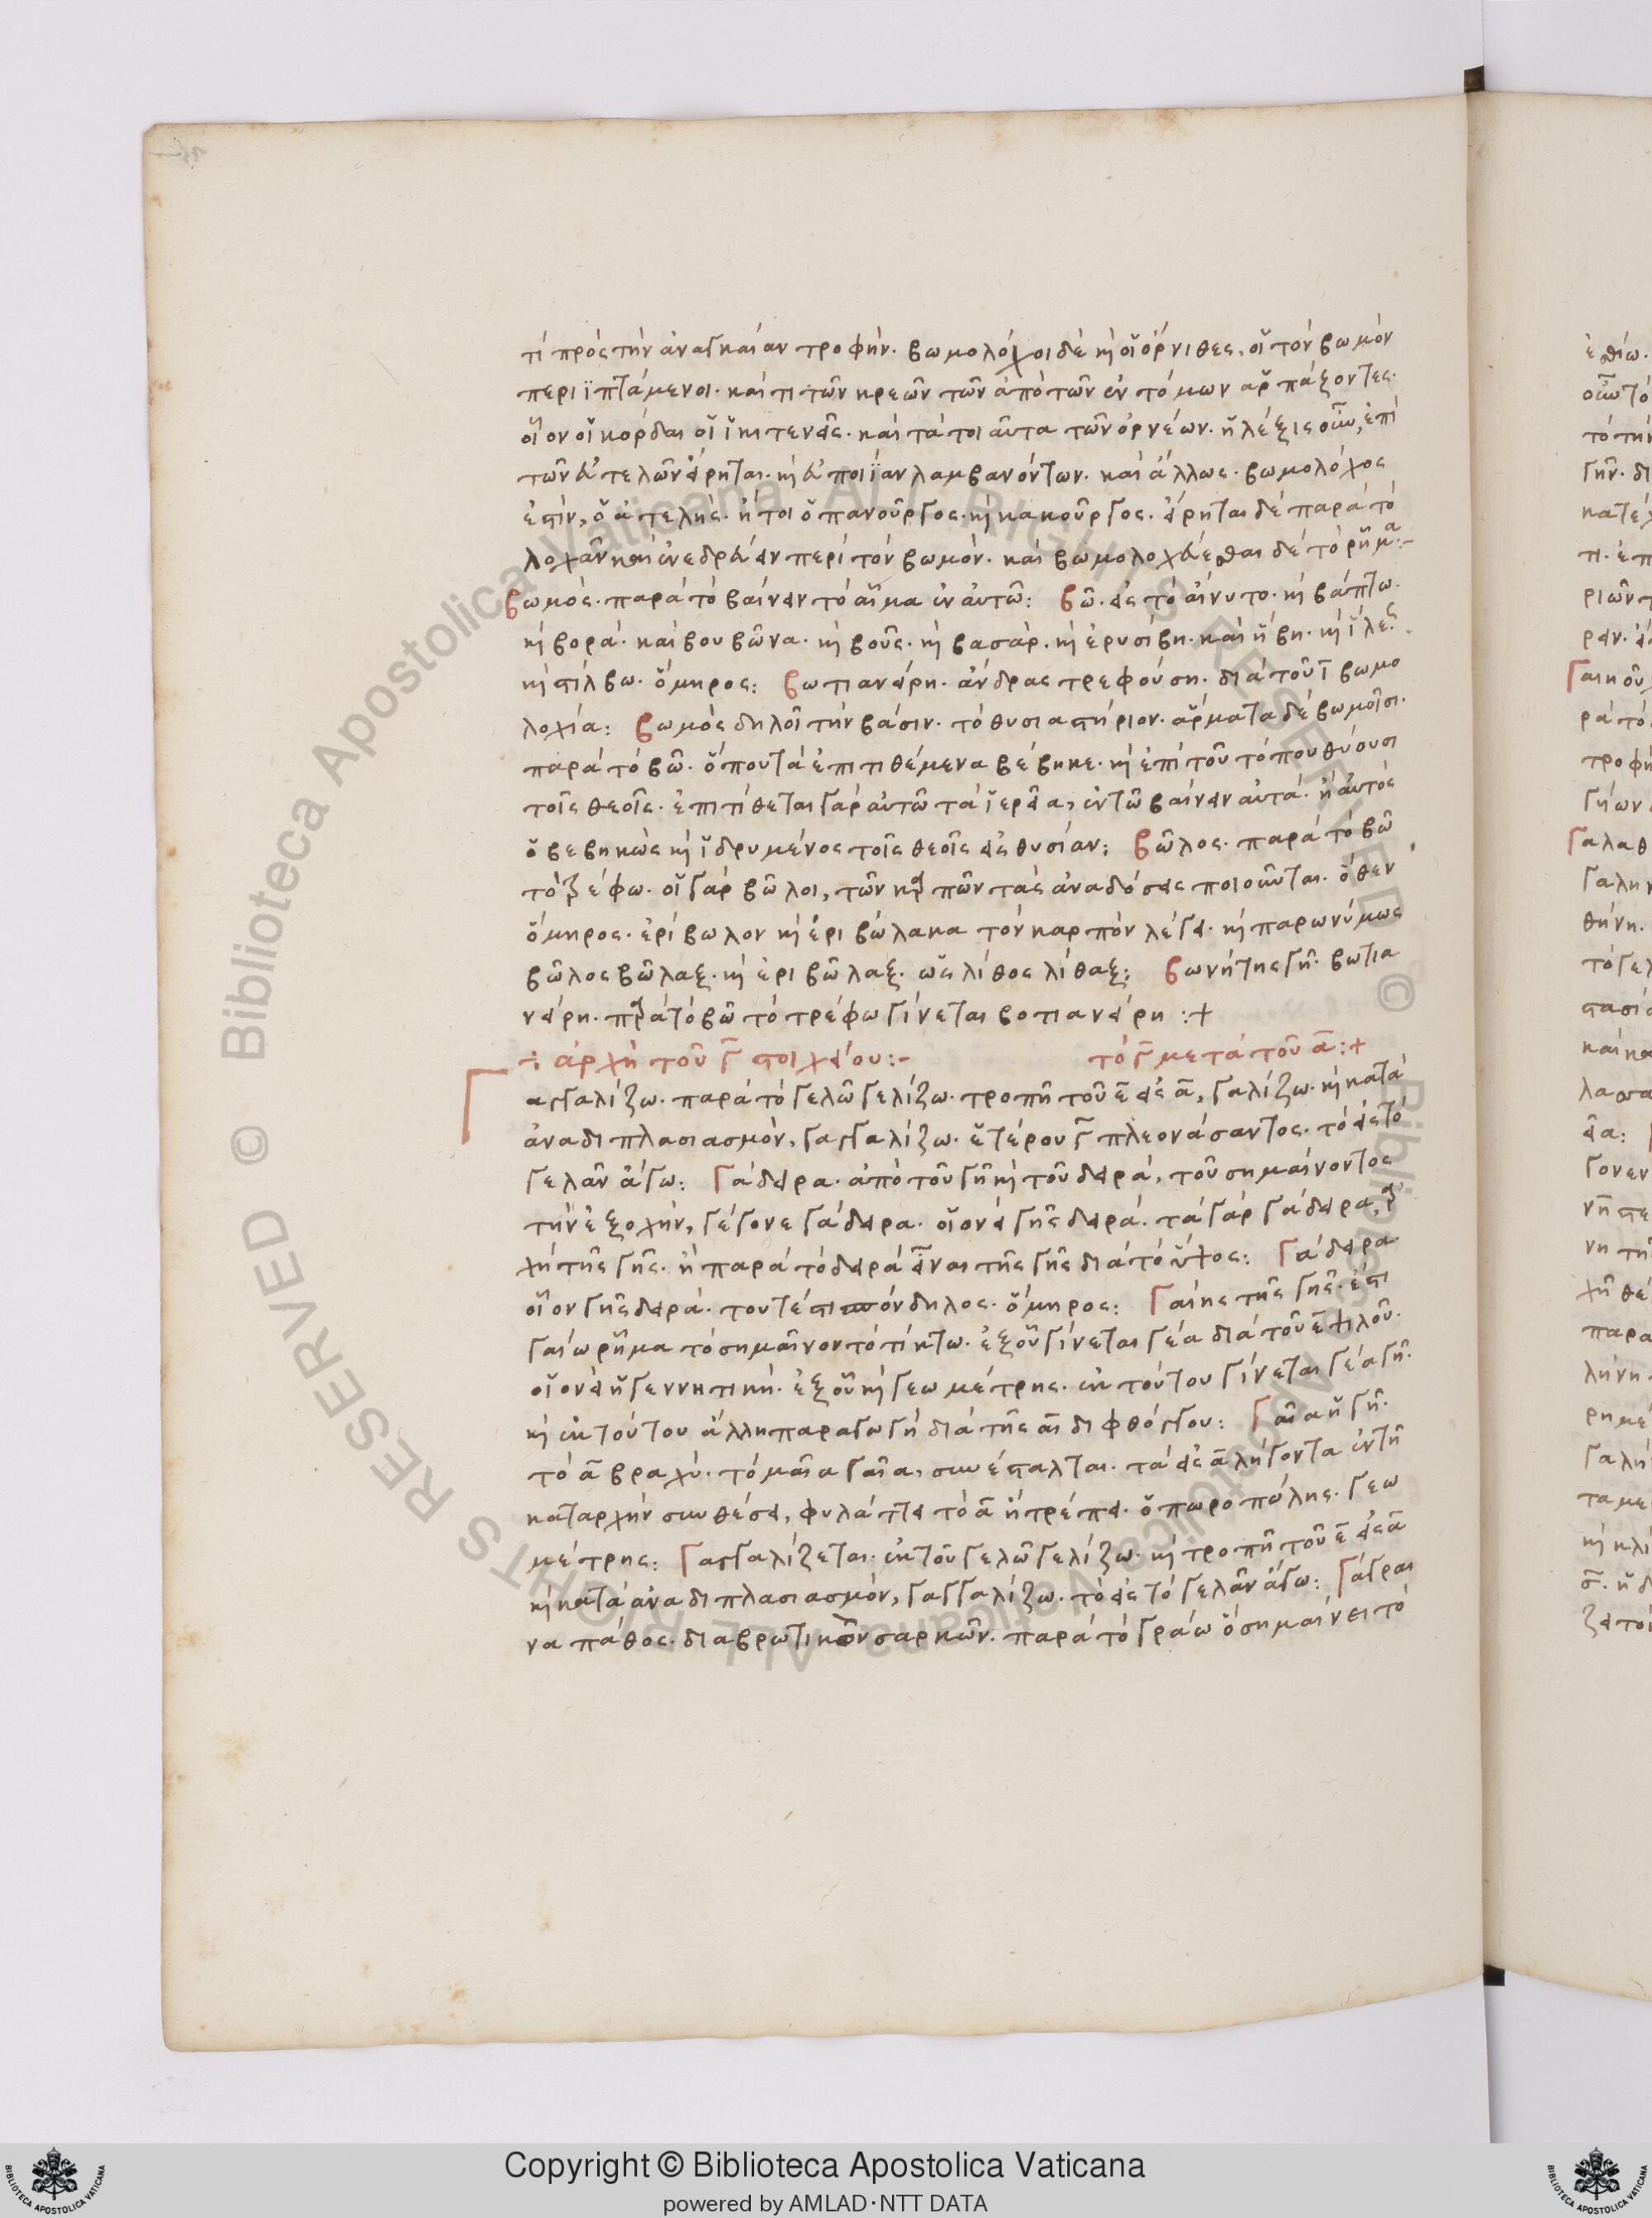 τί πρὸς τὴν ἀναγκαίαν τροφήν. βωμολόχοι δὲ κὶ οἵ ὄρνιθες. οἵ τὸν βωμὸν
περιϊπτάμενοι. καί τι τῶν κρεῶν τῶν ἀπὸ τῶν ἐντόμων ἁρπάζοντες.
οἷον οἵ κόρδαι οἵ ἵκιτενες. καὶ τὰ τοιαῦτα τῶν ὀρνέων. ἡ λέξις οὖν, ἐπὶ
τῶν εὐτελῶν εἴρηται. κὶ εὐποιΐαν λαμβανόντων. καὶ ἄλλως. βωμολόχος
ἐστίν, ὅ ἀτελής. ἤτοι ὅ πανοῦργος. κὶ κακοῦργος. εἴρηται δὲ παρὰ τὸ
λοχᾶν καὶ ἐνεδρεύειν περὶ τὸν βωμόν. καὶ βωμολοχεύεσθαι δὲ τὸ ῥῆμα:-
βωμός. παρὰ τὸ βαίνειν τὸ αἷμα ἐν αὐτῶ: βῶ. εἰς τὸ αἴνυτο. κὶ βάπτω.
κὶ βορά. καὶ βουβῶνα. κὶ βοῦς. κὶ βασάρ. κὶ ἐρυσίβη. καὶ ἥβη. κὶ ἵλεῖς.
κὶ στίλβω. ὅμηρος: βωτιανείρη. ἄνδρας τρεφούση. διὰ τοῦ ῑ βωμο
λοχία: βωμὸς δηλοῖ τὴν βάσιν. τὸ θυσιαστήριον. ἅρματα δὲ βωμοῖσι.
παρὰ τὸ βῶ. ὅπου τὰ ἐπιτιθέμενα βέβηκε. κὶ ἐπὶ τοῦ τόπου θύουσι
τοῖς θεοῖς. ἐπιτίθεται γὰρ αὐτῶ τὰ ἱερεῖα, ἐν τῶ βαίνειν αὐτά. ἢ αὐτὸς
ὅ βεβηκὼς κὶ ἱδρυμένος τοῖς θεοῖς εἰς θυσίαν: βῶλος. παρὰ τὸ βῶ
τὸ τρέφω. οἵ γὰρ βῶλοι, τῶν καρπῶν τὰς ἀναδόσεις ποιοῦνται. ὅθεν
ὅμηρος. ἐρίβωλον κὶ ἐριβώλακα τὸν καρπὸν λέγει. κὶ παρωνύμως
βῶλος βῶλαξ. κὶ ἐριβῶλαξ. ὡς λίθος λίθαξ: βωνήτης γῆ. βωτια
νείρη. παρὰ τὸ βῶ τὸ τρέφω γίνεται βοτιανείρη :+
÷ ἀρχὴ τοῦ γ̄ στοιχείου:- τὸ γ̄ μετὰ τοῦ ᾱ:+
Γαγγαλίζω. παρὰ τὸ γελῶ γελίζω. τροπῆ τοῦ ε̄ εἰς ᾱ, γαλίζω. κὶ κατὰ
ἀναδιπλασιασμόν, γαγγαλίζω. ἑτέρου γ̄ πλεονάσαντος. τὸ εἰς τὸ
γελᾶν ἄγω: Γάδειρα. ἀπὸ τοῦ γῆ κὶ τοῦ δειρά, τοῦ σημαίνοντος
τὴν ἐξοχήν, γέγονε γάδειρα. οἱονεὶ γῆς δειρά. τὰ γὰρ γάδειρα, ἀρ
χὴ τῆς γῆς. ἢ παρὰ τὸ δειρὰ εἶναι τῆς γῆς διὰ τὸ ὕψος: Γάδειρα.
οἷον γῆς δειρά. τουτέστι σπόνδηλος. ὅμηρος: Γαίης τῆς γῆς. ἐστι
γαίω ῥῆμα τὸ σημαῖνον τὸ τίκτω. ἐξ οὗ γίνεται γέα διὰ τοῦ ε̄ ψιλοῦ.
οἱονεὶ ἡ γεννητική. ἐξ οὗ κὶ γεωμέτρης. ἐκ τούτου γίνεται γέα γῆ.
κὶ ἐκ τούτου ἄλλη παραγωγὴ διὰ τῆς αι διφθόγγου: Γαῖα ἡ γῆ.
τὸ ᾱ βραχύ. τὸ μαῖα γαῖα, συνέσταλται. τὰ εἰς ᾱ λήγοντα ἐν τῆ
καταρχὴν συνθέσει, φυλάττει τὸ ᾱ ἢ τρέπει. ὅπωροπώλης. γεω
μέτρης: Γαγγαλίζεται. ἐκ τοῦ γελῶ γελίζω. κὶ τροπῆ τοῦ ε̄ εἰς ᾱ
κὶ κατὰ ἀναδιπλασιασμόν, γαγγαλίζω. τὸ εἰς τὸ γελᾶν ἄγω: Γάγραι
να πάθος. διαβρωτικὸν σαρκῶν. παρὰ τὸ γράω ὅ σημαίνει τὸ